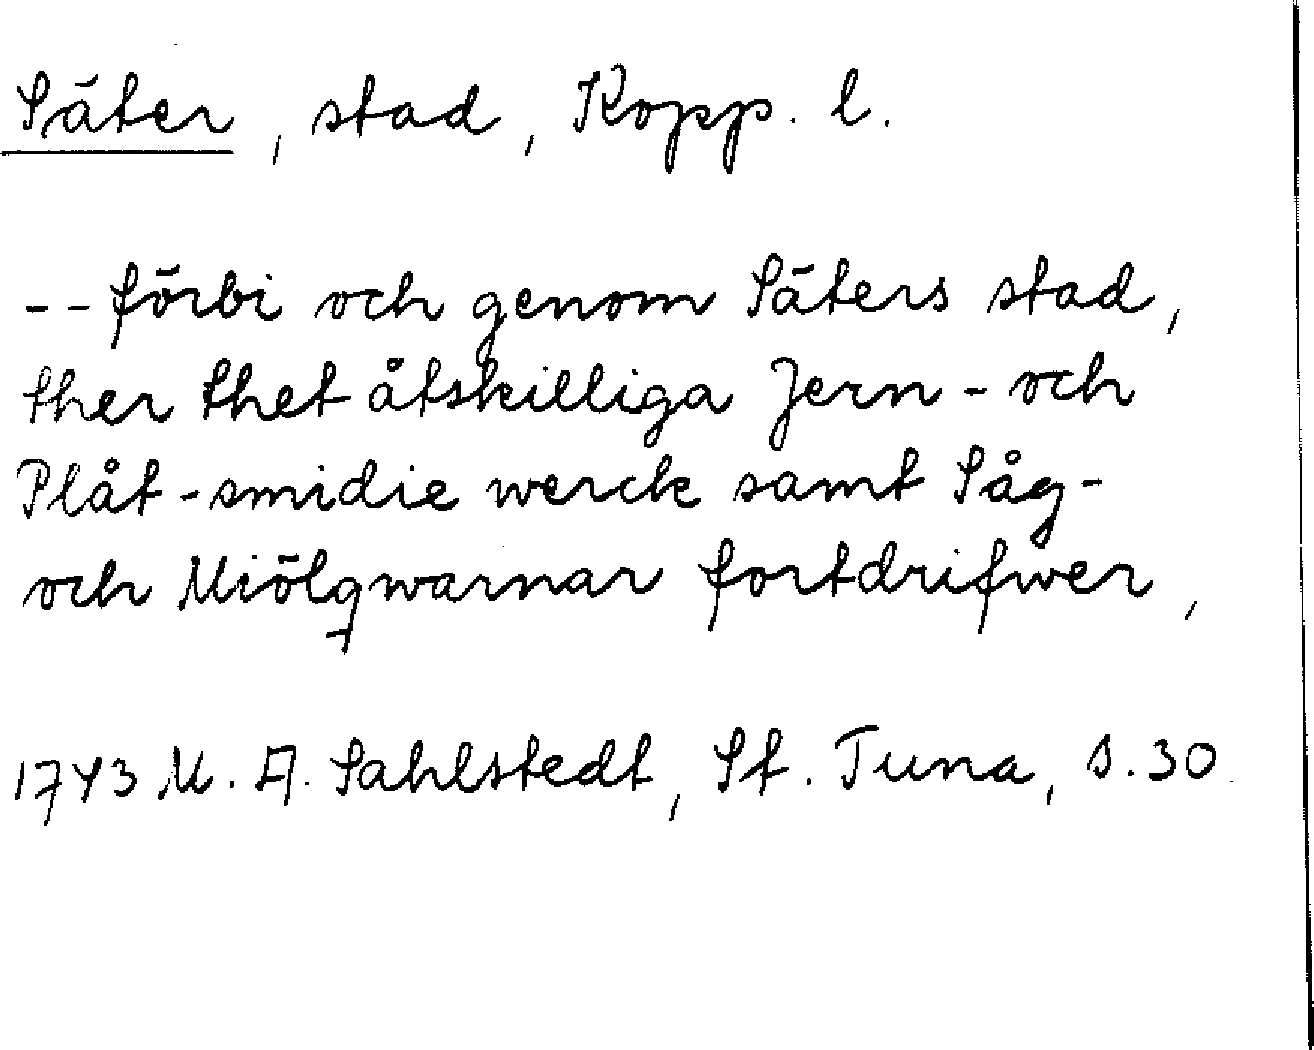 Säter, stad, Kopp. l.
-- förbi och genom Säters stad,
ther thet åtskilliga Jern- och
Plåt-smidie werck samt Såg-
och Miölqwarnar fortdrifwer,
1743 M. A. Sahlstedt, St. Tuna, s. 30